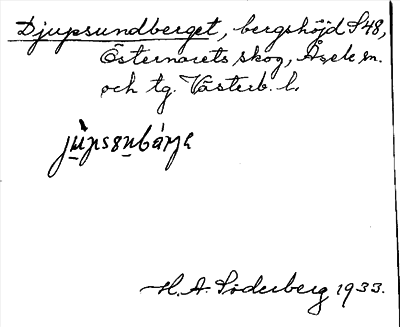 Djupsundberget, bergshöjd S48,
Östernorets skog, Åsele sn.
och tg. Västerb. l.
jùpsɐnbárjɐ
H. A. Söderberg 1933.